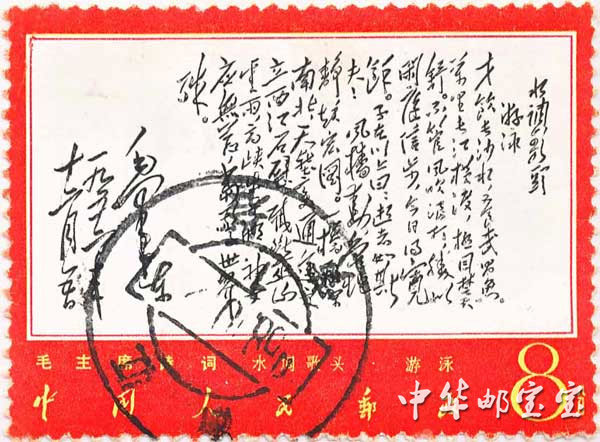 水调歌头
游泳
才飲长沙水又食武昌魚。
万里长江横渡,极目楚天
舒。不管风吹浪打,胜似
闲庭信步,今日得宽
馀。子在川上曰:逝者如斯
夫! 风樯动
静起宏图。一桥
南北,天堑变通途
立西江石壁,截断巫山
云雨,高峡出平湖 神女
应無恙,当惊世界
殊。
毛泽东
一九五六年
十二月五日
毛主席诗词 水调歌头·游泳
中国人民郵
8分
中华邮宝宝